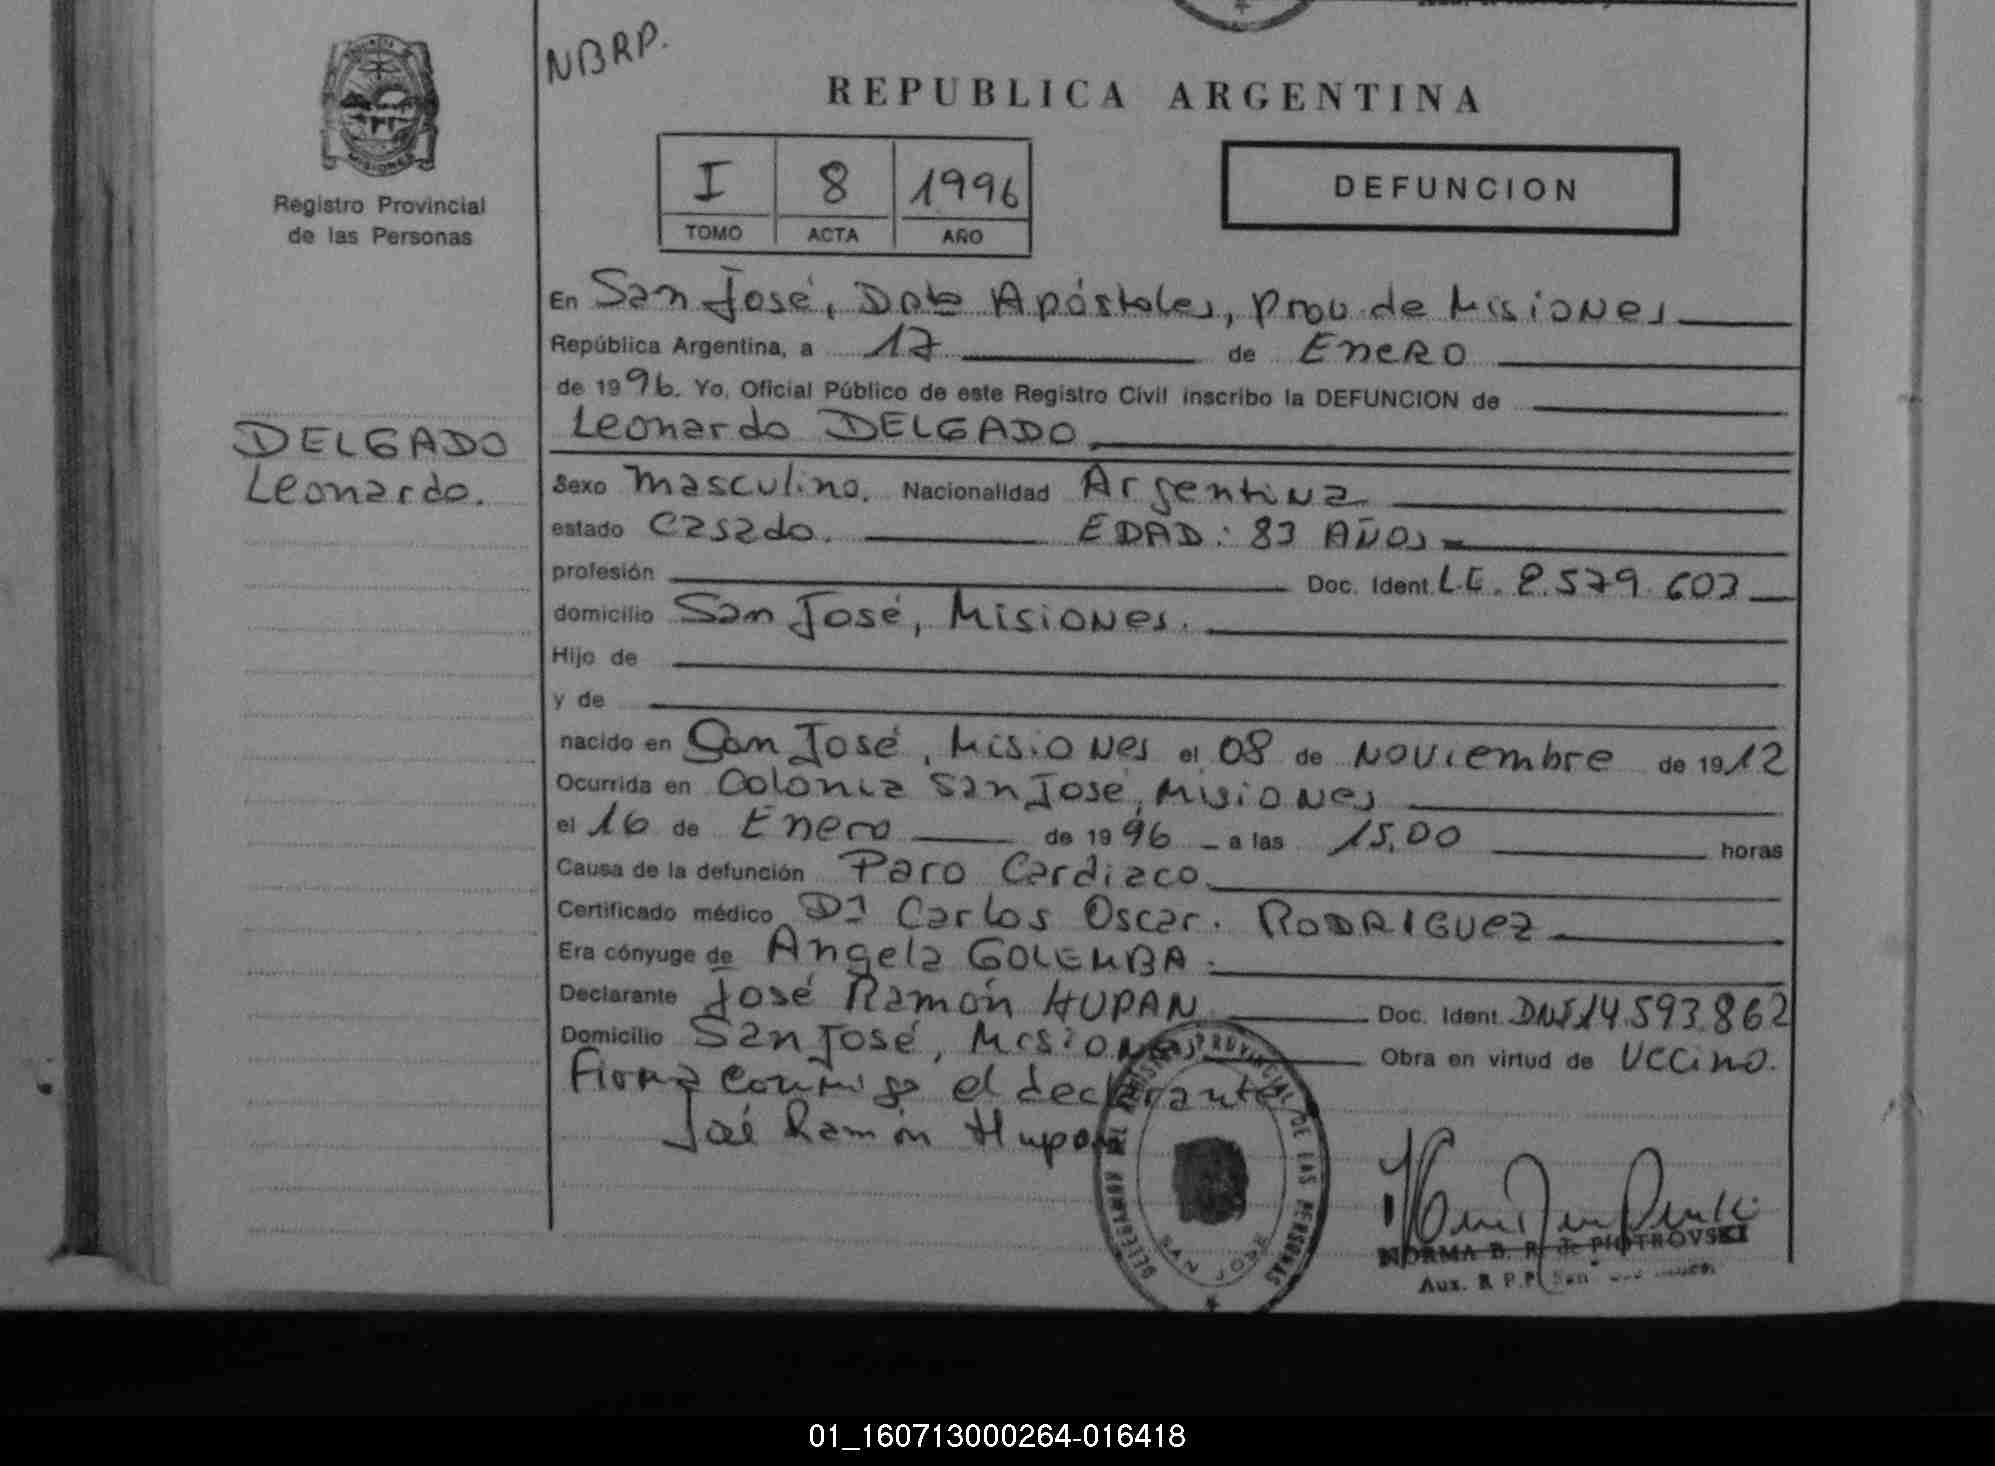 NBRP.
PROVINCIA DE
MISIONES
Registro Provincial
de las Personas
REPUBLICA ARGENTINA
I 8 1996
TOMO ACTA AÑO
DEFUNCION
En San José, Dpto Apóstoles, Prov de Misiones
República Argentina, a 17 de Enero
de 1996. Yo, Oficial Público de este Registro Civil inscribo la DEFUNCION de
Leonardo DELGADO
DELGADO
Leonardo.
Sexo Masculino. Nacionalidad Argentina
estado Casado. EDAD: 83 AÑOS
profesión Doc. Ident. L.E. 2.579.603
domicilio San José, Misiones.
Hijo de
y de
nacido en San José, Misiones el 08 de Noviembre de 1912
Ocurrida en Colonia San José, Misiones
el 16 de Enero de 1996 a las 15,00 horas
Causa de la defunción Paro Cardiaco
Certificado médico Dr Carlos Oscar. RODRIGUEZ
Era cónyuge de Angela GOLEMBA.
Declarante José Ramón HUPAN Doc. Ident. DNI 14.593.862
Domicilio San José, Misiones Obra en virtud de Vecino.
Firma conmigo el declarante
José Ramón Hupan
DELEGAMOS DEL REGISTRO PROVINCIAL DE LAS PERSONAS
SAN JOSE
NORMA B. R. de PIOTROVSKI
Aux. R P.P. San
01_160713000264-016418